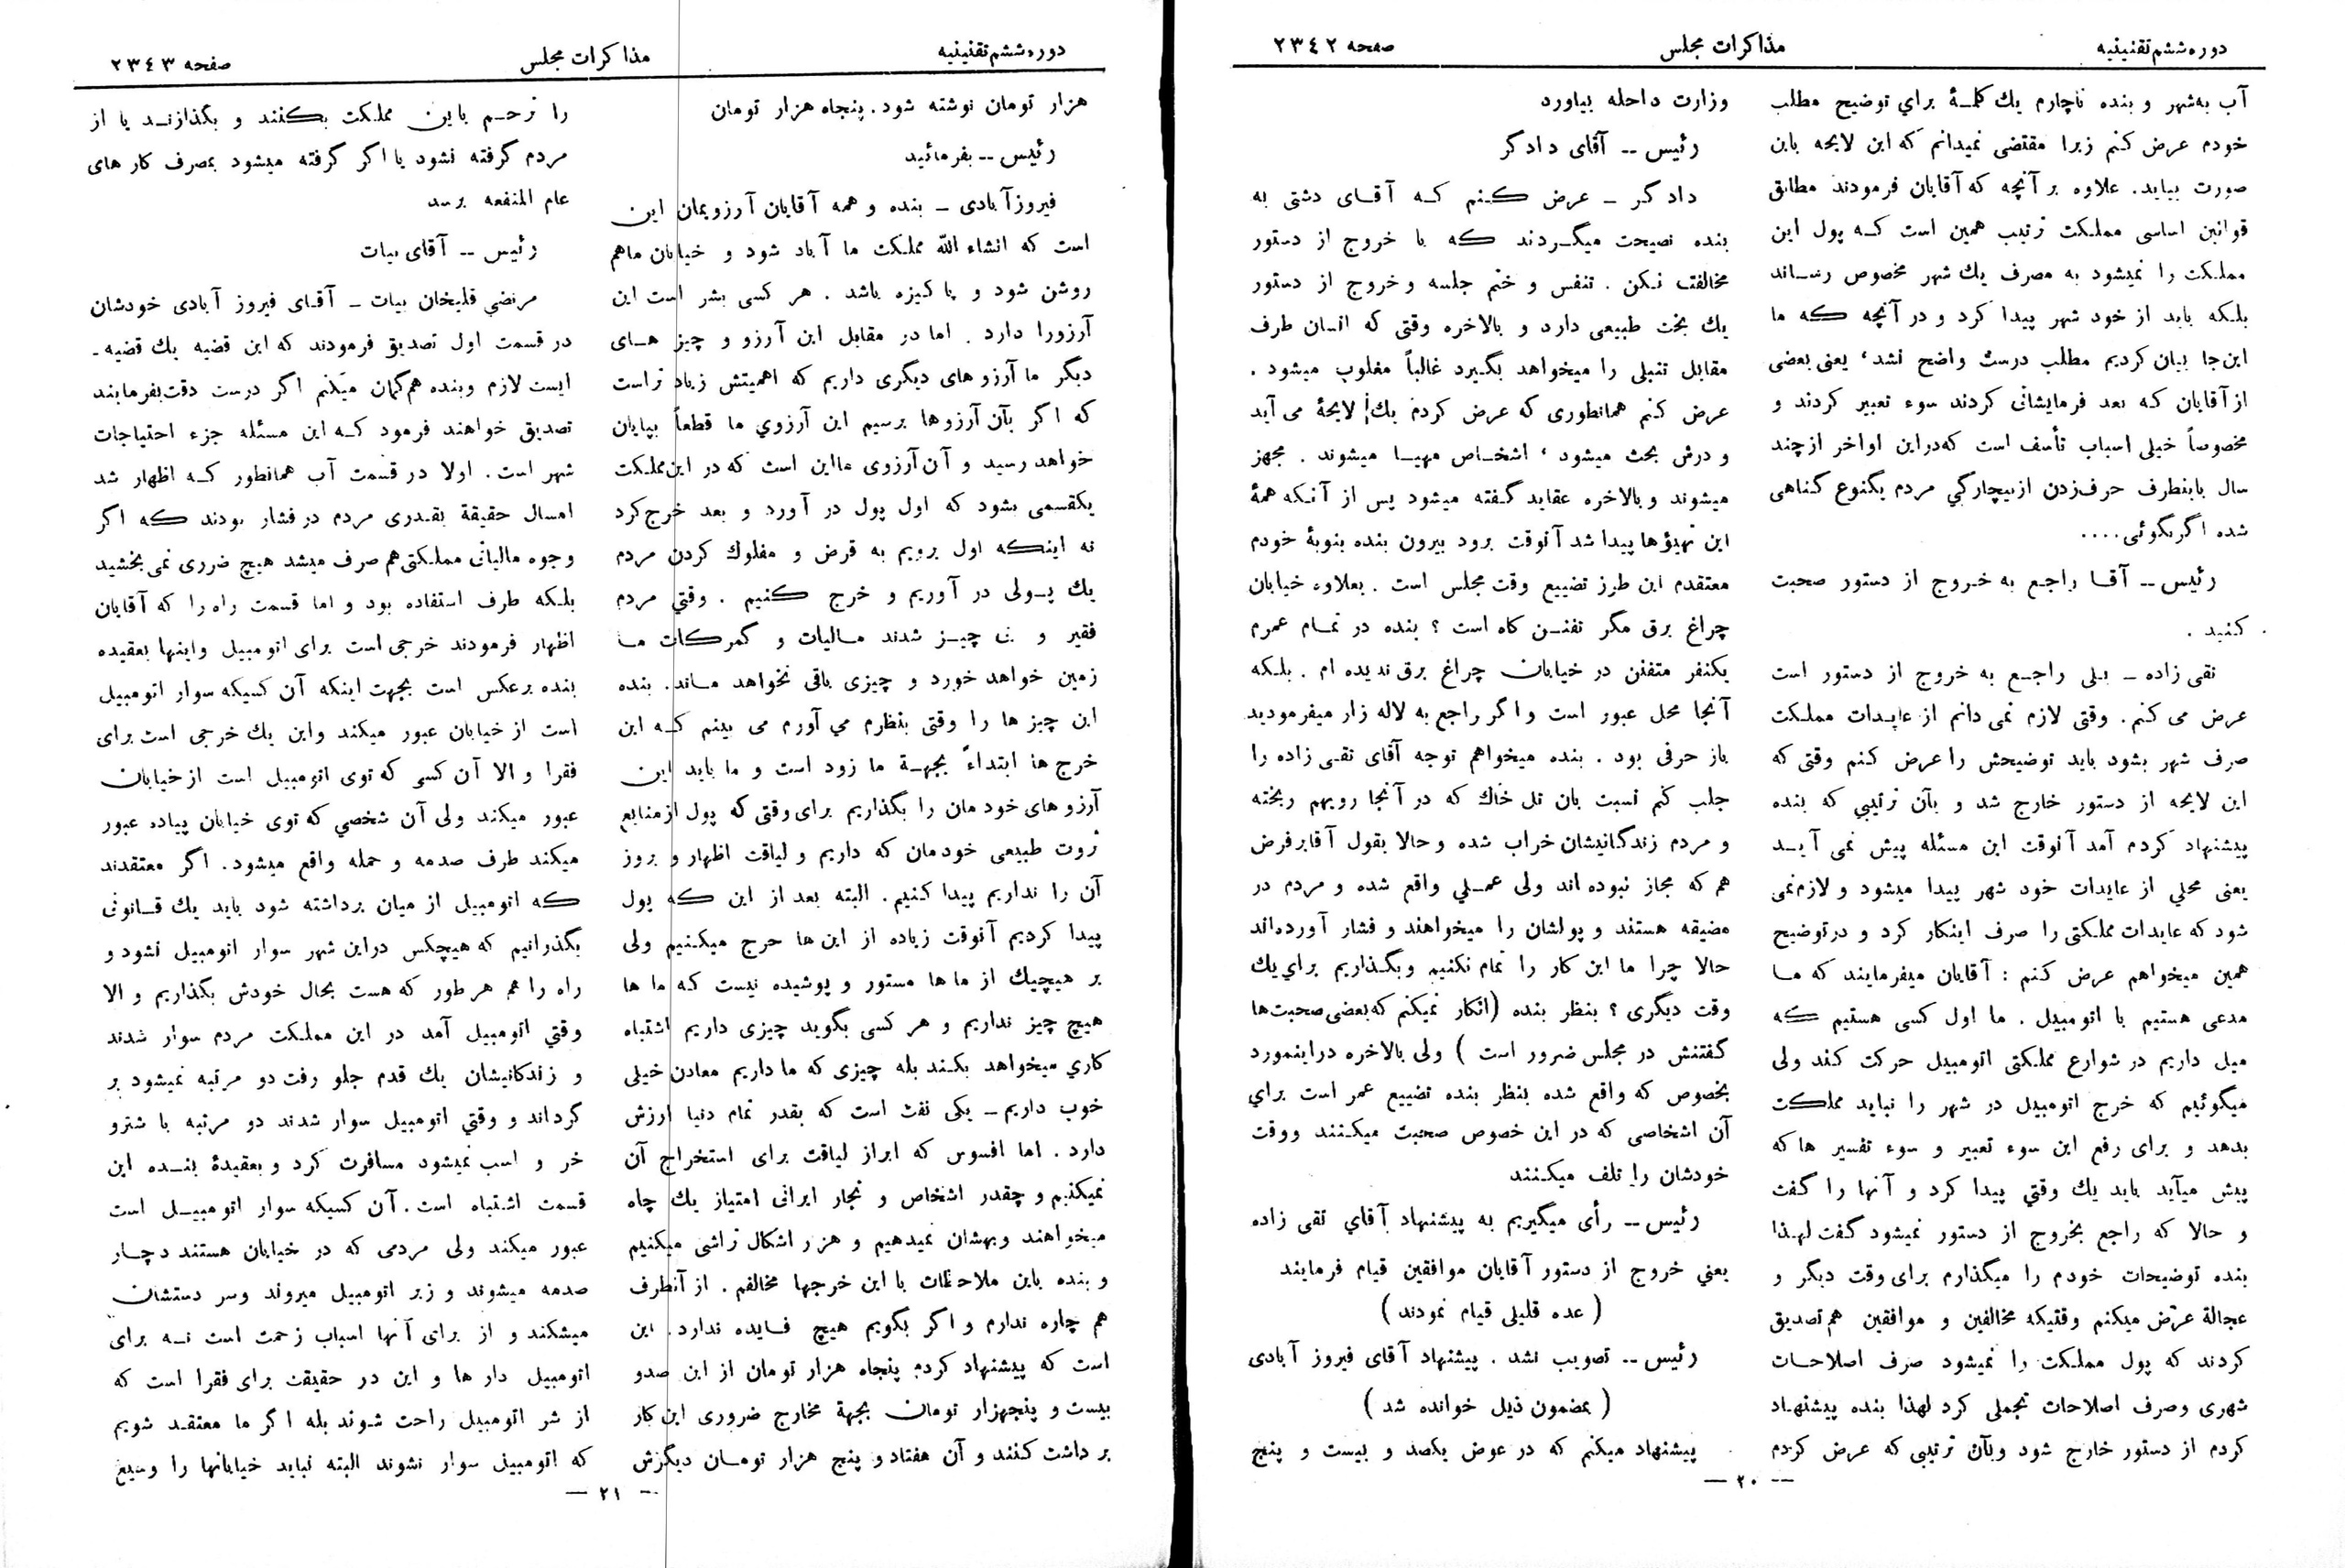 دوره ششم تقنینیه
مذاکرات مجلس
صفحه ۲۳٤۲
آب به‌شهر و بنده ناچارم یك کلمـهٔ براي توضیح مطلب
خودم عرض کنم زیرا مقتضی نمیدانم که این لایحه باین
صورت بیاید. علاوه بر آنچه که آقایان فرمودند مطابق
قوانین اساسی مملکت ترتیب همین است کـه پول این
مملکت را نمیشود به مصرف یك شهر مخصوص رسـاند
بلکه باید از خود شهر پیدا کرد و در آنچه که ما
این‌جا بیان کردیم مطلب درست واضح نشد، یعنی بعضی
از آقایان که بعد فرمایشاتی کردند سوء تعبیر کردند و
مخصوصاً خیلی اسباب تأسف است که‌دراین اواخر ازچند
سال باینطرف حرف‌زدن ازبیچارگي مردم یکنوع گناهی
شده اگربگوئی....
رئیس -- آقـا راجع به خروج از دستور صحبت
کنید .
تقی زاده ـ بـلی راجـع به خروج از دستور است
عرض می کنم. وقتی لازم نمی دانم از عایـدات مملکت
صرف شهر بشود باید توضیحش را عرض کنم وقتی که
این لایحه از دستور خارج شد و بآن ترتیبي که بنده
پیشنهاد کردم آمد آنوقت این مسئله پیش نمی آیـد
یعنی محلي از عایدات خود شهر پیدا میشود و لازم‌نمی
شود که عایدات مملکتی را صرف اینکار کرد و درتوضیح
همین میخواهم عرض کنم : آقایان میفرمایند که مـا
مدعی هستیم با اتومبیل . ما اول کسی هستیم که
میل داریم در شوارع مملکتی اتومبیل حرکت کند ولی
میگوئیم که خرج اتومبیل در شهر را نباید مملکت
بدهد و برای رفع این سوء تعبیر و سوء تفسیر ها که
پیش میآید باید یك وقتي پیدا کرد و آنها را گفت
و حالا که راجع بخروج از دستور نمیشود گفت لهـذا
بنده توضیحات خودم را میگذارم برای وقت دیگر و
عجالة عرض میکنم وقتیکه مخالفین و موافقین هم تصدیق
کردند که پول مملکت را نمیشود صرف اصلاحـات
شهری وصرف اصلاحات تجملی کرد لهذا بنده پیشنهـاد
کردم از دستور خارج شود وبآن ترتیبی که عرض کردم
وزارت داخله بیاورد
رئیس -- آقای دادگر
دادگر ـ عرض کنم کـه آقـای دشتی به
بنده نصیحت میگـردند که با خروج از دستور
مخالفت نکن . تنفس و ختم جلسه و خروج از دستور
یك بخت طبیعی دارد و بالاخره وقتی که انسان طرف
مقابل تنبلی را میخواهد بگیرد غالباً مغلوب میشود .
عرض کنم همانطوری که عرض کردم یك لایحهٔ می آید
و درش بحث میشود ، اشخـاص مهیـا میشوند . مجهز
میشوند و بالاخره عقاید گفته میشود پس از آنکه همهٔ
این تهیؤها پیدا شد آنوقت برود بیرون بنده بنوبهٔ خودم
معتقدم این طرز تضییع وقت مجلس است . بعلاوه خیابان
چراغ برق مگر تفنـن گاه است ؟ بنده در تمـام عمرم
یکنفر متفنن در خیابان چراغ برق ندیده ام . بلکه
آنجا محل عبور است و اگر راجع به لاله زار میفرمودید
باز حرفی بود . بنده میخواهم توجه آقای تقی زاده را
جلب کنم نسبت بان تل خاك که در آنجا رویهم ریخته
و مردم زندگانیشان خراب شده و حالا بقول آقا برفرض
هم که مجاز نبوده اند ولی عمـلي واقع شده و مردم در
مضیقه هستند و پولشان را میخواهند و فشار آورده‌اند
حالا چرا ما این کار را تمام نکنیم وبگـذاریم براي یك
وقت دیگری ؟ بنظر بنده (انکار نمیکنم که بعضی صحبت‌ها
گفتنش در مجلس ضرور است ) ولی بالاخره دراینمورد
بخصوص که واقع شده بنظر بنده تضییع عمر است براي
آن اشخاصی که در این خصوص صحبت میکنند ووقت
خودشان را تلف میکـنند
رئیس -- رأی میگیریم به پیشنهاد آقاي تقی زاده
یعني خروج از دستور آقایان موافقین قیام فرمایند
( عده قلیلی قیام نمودند )
رئیس -- تصویب نشد . پیشنهاد آقای فیروز آبادی
( بمضمون ذیل خوانده شد )
پیشنهاد میکنم که در عوض یکصد و بیست و پنج
-- ۲۰ —
دوره ششم تقنینیه
مذاکرات مجلس
صفحه ۲۳٤۳
هزار تومان نوشته شود. پنجاه هزار تومان
رئیس -- بفرمائید
فیروزآبادی ـ بنده و همه آقایان آرزویمان این
است که انشاء الله مملکت ما آباد شود و خیابان ماهم
روشن شود و پاکیزه باشد . هر کسی بشر است این
آرزورا دارد . اما در مقابل این آرزو و چیز هـای
دیگر ما آرزو های دیگری داریم که اهمیتش زیاد تر است
که اگر بآن آرزوها برسیم این آرزوي ما قطعاً بپایان
خواهد رسید و آن‌آرزوی مااین است که در این‌مملکت
یکقسمی بشود که اول پول در آورد و بعد خرج کرد
نه اینکه اول برویم به قرض و مفلوك کردن مردم
یك پـولی در آوریم و خرج کنیم . وقتي مردم
فقیر و بی چیـز شدند مـالیات و گمرکات مـا
زمین خواهد خورد و چیزی باقی نخواهد مـاند. بنده
این چیز ها را وقتی بنظرم می آورم می بینم کـه این
خرج ها ابتداءً بجهـة ما زود است و ما باید این
آرزو های خودمان را بگذاریم برای وقتی که پول ازمنابع
ثروت طبیعی خودمان که داریم و لیاقت اظهار و بروز
آن را نداریم پیدا کنیم. البته بعد از این که پول
پیدا کردیم آنوقت زیاده از این ها خرج میکنیم ولی
بر هیچیك از ما ها مستور و پوشیده نیست که ما ها
هیچ چیز نداریم و هر کسی بگوید چیزی داریم اشتباه
کاري میخواهد بکند بله چیزی که ما داریم معادن خیلی
خوب داریم ـ یکی نفت است که بقدر تمام دنیا ارزش
دارد . اما افسوس که ابراز لیاقت برای استخراج آن
نمیکنیم و چقدر اشخاص و تجار ایرانی امتیاز یك چاه
میخواهند وبهشان نمیدهیم و هزار اشکال تراشی میکنیم
و بنده باین ملاحظات با این خرجها مخالفم . از آنطرف
هم چاره ندارم و اگر بگویم هیچ فـایده ندارد. این
است که پیشنهاد کردم پنجاه هزار تومان از این صدو
بیست و پنجهزار تومان بجهة مخارج ضروری این کار
برداشت کنند و آن هفتاد و پنج هزار تومـان دیگرش
را ترحـم باین مملکت بکنند و بگذارنـد یا از
مردم گرفته نشود یا اگر گرفته میشود بمصرف کار های
عام المنفعه برسد
رئیس -- آقای بیات
مرتضي قلیخان بیات ـ آقـای فیروز آبادی خودشان
در قسمت اول تصدیق فرمودند که این قضیه یك قضیه‌ـ
ایست لازم وبنده هم‌گمان میکنم اگر درست دقت‌بفرمایند
تصدیق خواهند فرمود کـه این مسئله جزء احتیاجات
شهر است . اولا در قسمت آب همانطور کـه اظهار شد
امسال حقیقة بقـدری مردم درفشار بودند که اگر
وجوه مالیاتی مملکتی هم صرف میشد هیچ ضرری نمی بخشید
بلکه طرف استفاده بود و اما قسمت راه را که آقایان
اظهار فرمودند خرجی است برای اتومبیل واینها بعقیده
بنده برعکس است بجهت اینکه آن کسیکه سوار اتومبیل
است از خیابان عبور میکند واین یك خرجی است برای
فقرا و الا آن کسی که توی اتومبیل است از خیابان
عبور میکند ولی آن شخصي که توی خیابان پیاده عبور
میکند طرف صدمه و حمله واقع میشود. اگر معتقدند
که اتومبیل از میان برداشته شود باید یك قـانونی
بگذرانیم که هیچکس دراین شهر سوار اتومبیل نشود و
راه را هم هر طور که هست بحال خودش بگذاریم و الا
وقتي اتومبیل آمد در این مملکت مردم سوار شدند
و زندگانیشان یك قدم جلو رفت دو مرتبه نمیشود بر
گرداند و وقتي اتومبیل سوار شدند دو مرتبه با شترو
خر و اسب نمیشود مسافرت کرد و بعقیدهٔ بنـده این
قسمت اشتباه است. آن کسیکه سوار اتومبیـل است
عبور میکند ولی مردمی که در خیابان هستند دچـار
صدمه میشوند و زیر اتومبیل میروند وسر دستشان
میشکند و از برای آنها اسباب زحمت است نـه برای
اتومبیل دار ها و این در حقیقت برای فقرا است که
از شر اتومبیل راحت شوند بله اگر ما معتقـد شویم
که اتومبیل سوار نشوند البته نباید خیابانها را وسیع
-- ۲۱ —